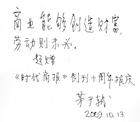 商业能够创造财富，
劳动则未必。
《时代商报》创刊十周年致庆
茅于轼
2009.10.13